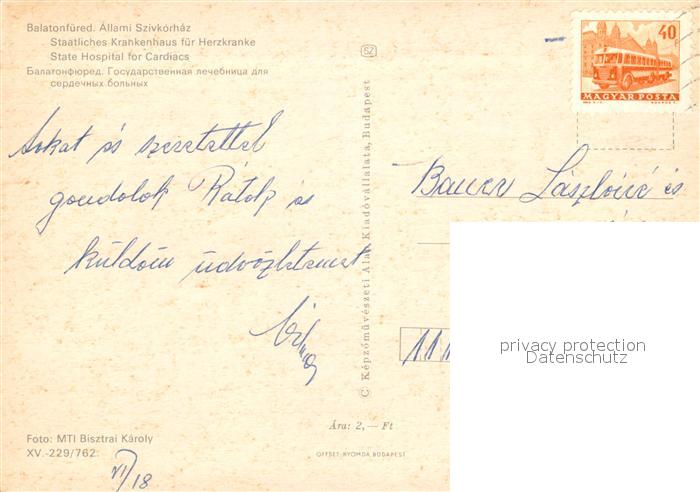 Balatonfüred. Állami Szívkórház
Staatliches Krankenhaus für Herzkranke
State Hospital for Cardiacs
Балатонфюред. Государственная лечебница для
сердечных больных
Sokat és szeretettel
gondolok Rátok és
küldöm üdvözletemet
VI/18
Foto: MTI Bisztrai Károly
XV.-229/762.
C Képzőművészeti Alap Kiadóvállalata, Budapest
SZ
Ára: 2,— Ft
OFFSET-NYOMDA BUDAPEST
40 f
MAGYAR POSTA
Bauer Lászlóné és
111
privacy protection
Datenschutz